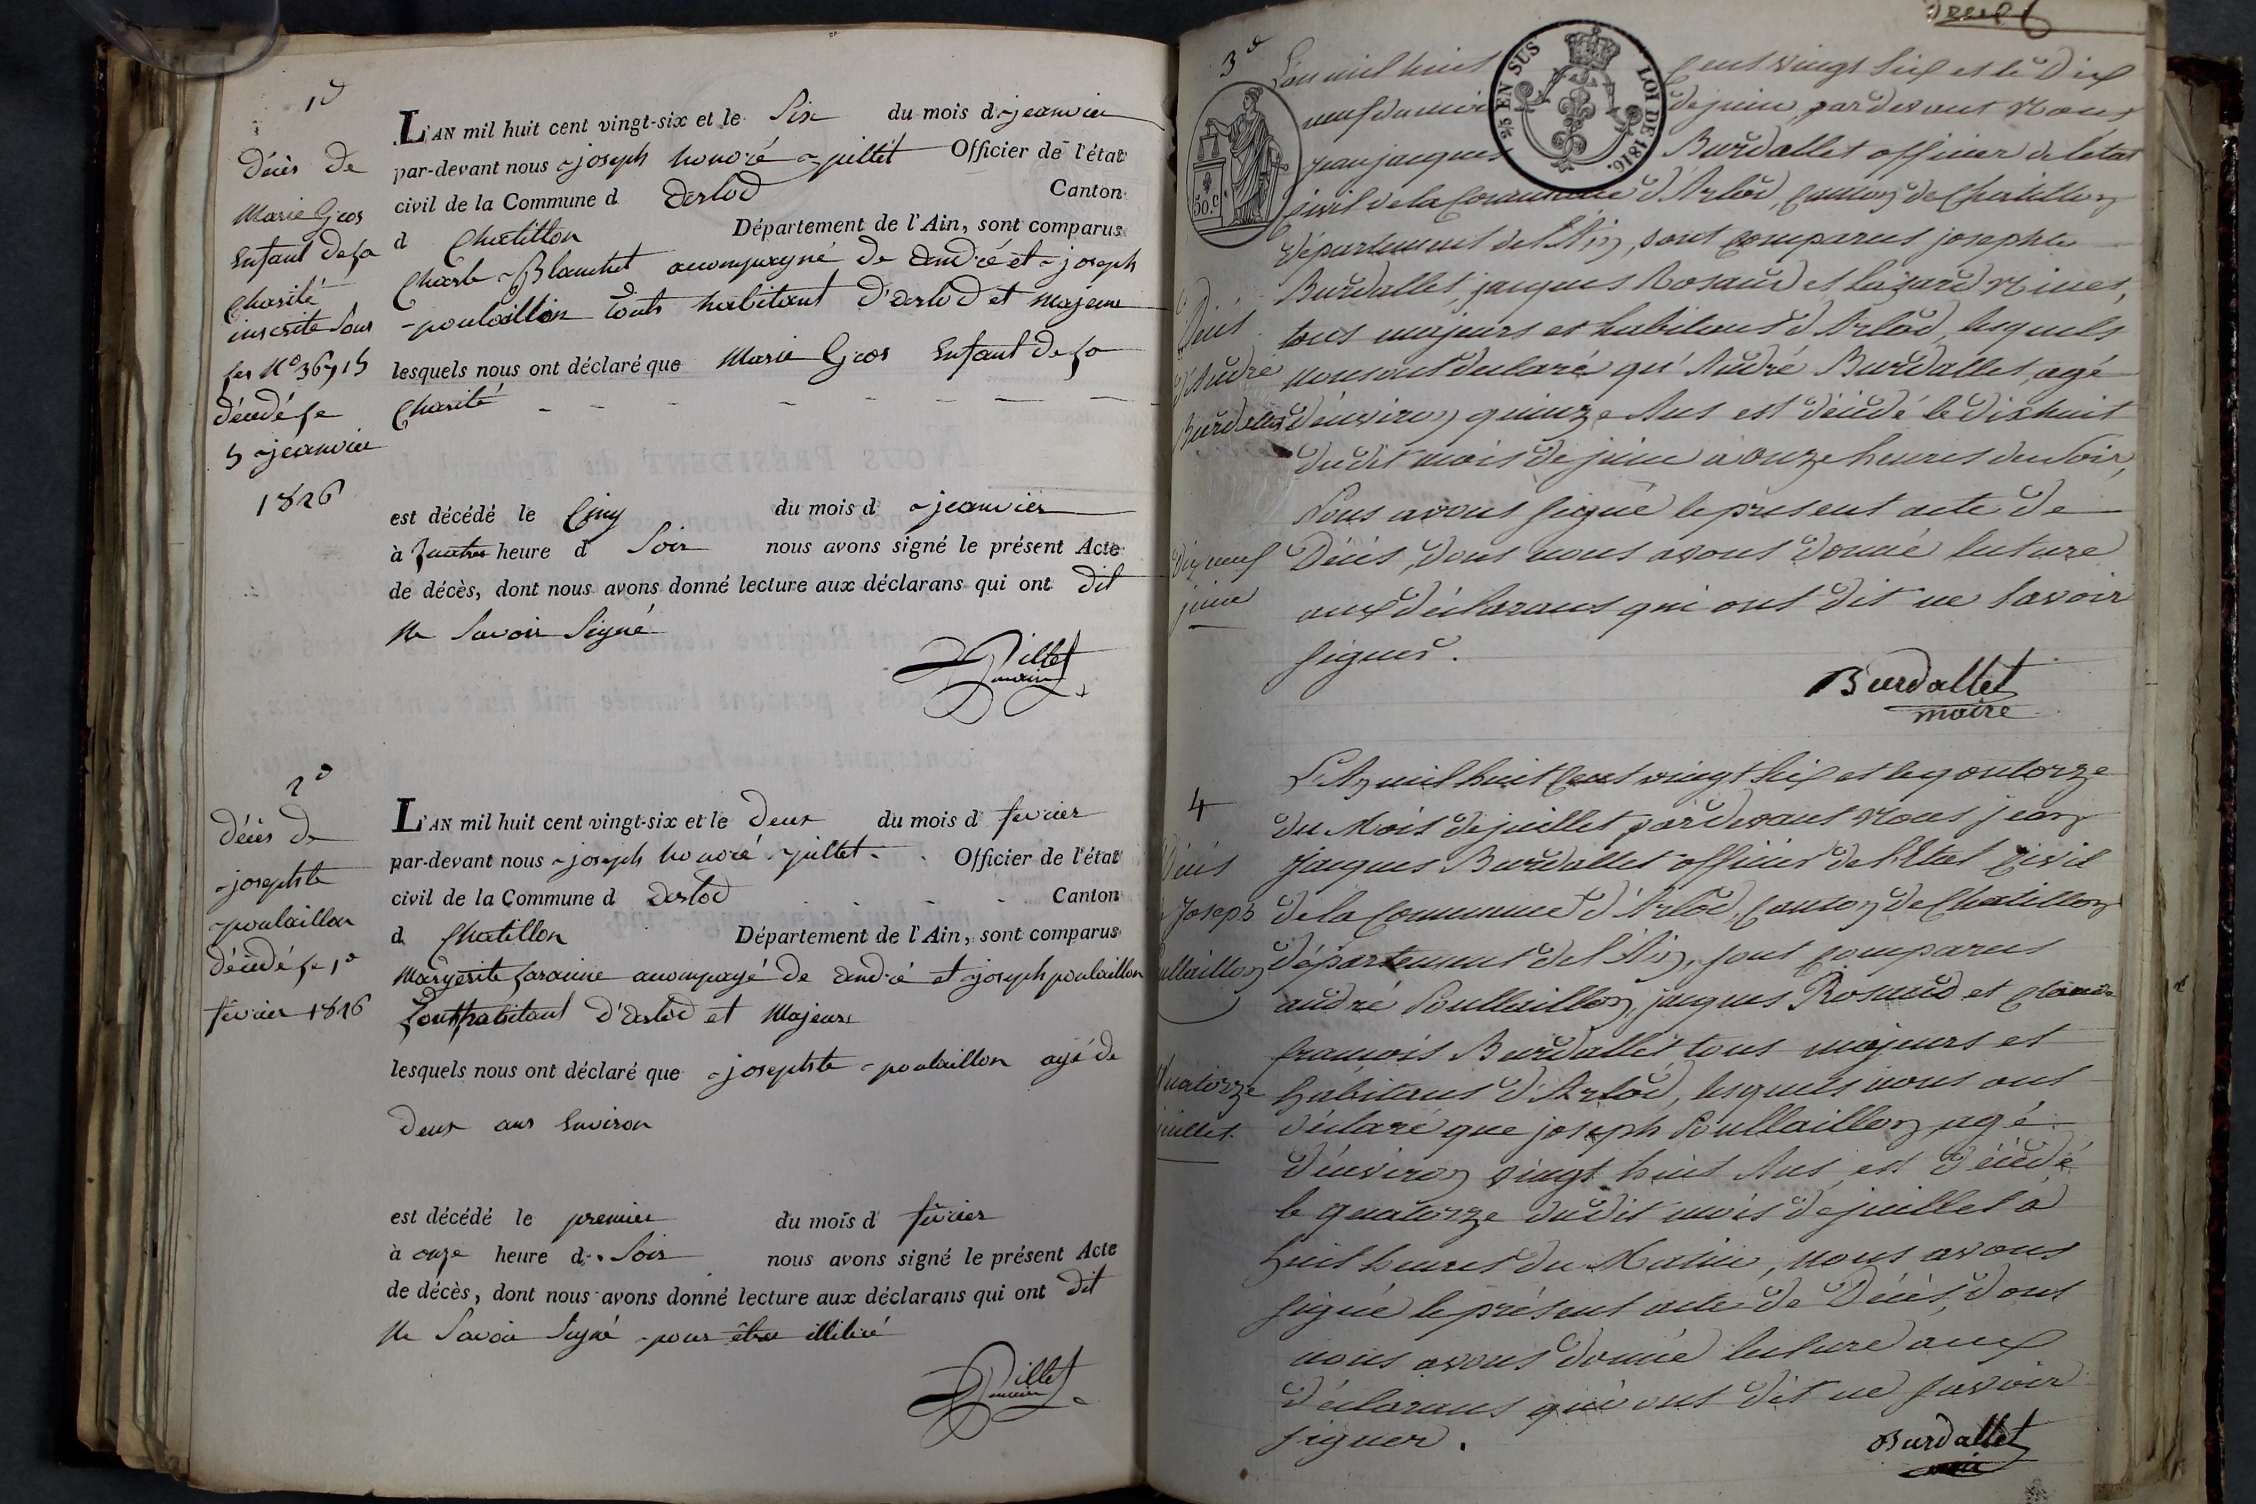 1d
Décès de
Marie Gros
Enfant de la
Charité
inscrite sous
les No 36715
décédé le
5 jeanvier
1826
L'AN mil huit cent vingt-six et le Six du mois d jeanvier
par-devant nous joseph honoré pillet Officier de l'état
civil de la Commune d Derlod Canton
d Chatillon Département de l'Ain, sont comparus
Charle Blanchet acompagné de andré et joseph
poulaillon touts habitant d'Derlod et majeur
lesquels nous ont déclaré que Marie Gros Enfant de la
Charité
est décédé le Cinq du mois d jeanvier
à quatres heure d Soir nous avons signé le présent Acte
de décès, dont nous avons donné lecture aux déclarans qui ont dit
Ne Savoir Signé
Pillet
maire
2d
décès de
josephte
poulaillon
décédé le 1e
février 1826
L'AN mil huit cent vingt-six et le Deux du mois d fevrier
par-devant nous joseph honoré pillet Officier de l'état
civil de la Commune d Derlod Canton
d Chatillon Département de l'Ain, sont comparus
Margerite acompagé de andré et joseph poulaillon
tout habitant d'Derlod et Majeur
lesquels nous ont déclaré que josephte poulaillon agé de
Deux ans Environ
est décédé le premier du mois d février
à onze heure d Soir nous avons signé le présent Acte
de décès, dont nous avons donné lecture aux déclarans qui ont dit
Ne Savoir Signé pour être illitéré
Pillet
maire
3d
25 EN SUS
LOI DE 1816.
50.c
Décès
d'André
Burdallet
Dix neuf
juin
L'an mil huit Cent vingt Six et le Dix
neuf du mois de juin, par devant Nous
jean jacques Burdallet officier de l'état
civil de la Commune d'Arlod, Canton de Chatillon
Département de l'Ain, sont comparus josephte
Burdallet, jacques Rosaud et Lazard Vinet,
tous majeurs et habitans d'Arlod, lesquels
nous ont déclaré qu'André Burdallet, agé
d'environ quinze Ans est décédé le dixhuit
dudit mois de juin à onze heures du Soir,
Nous avons signé le présent acte de
Décès, dont nous avons donné lecture
aux déclarans qui ont dit ne Savoir
signer.
Burdallet
maire
4
Décès
Joseph
Quatorze
juillet
L'An mil huit Cent vingt Six et le quatorze
du Mois de juillet, pardevant Nous jean
jacques Burdallet officier de l'Etat Civil
de la Commune d'Arlod, Canton de Chatillon
département de l'Ain, sont comparus
andré Poullaillon, jacques Rosaud et Claude
françois Burdallet tous majeurs et
habitans d'Arlod, lesquels nous ont
déclaré que joseph Poullaillon, agé
d'environ vingt huit Ans, est décédé
le quatorze dudit mois de juillet à
huit heures du Matin, nous avons
signé le présent acte de Décès, dont
nous avons donné lecture aux
déclarans qui ont dit ne savoir
signer.
Burdallet